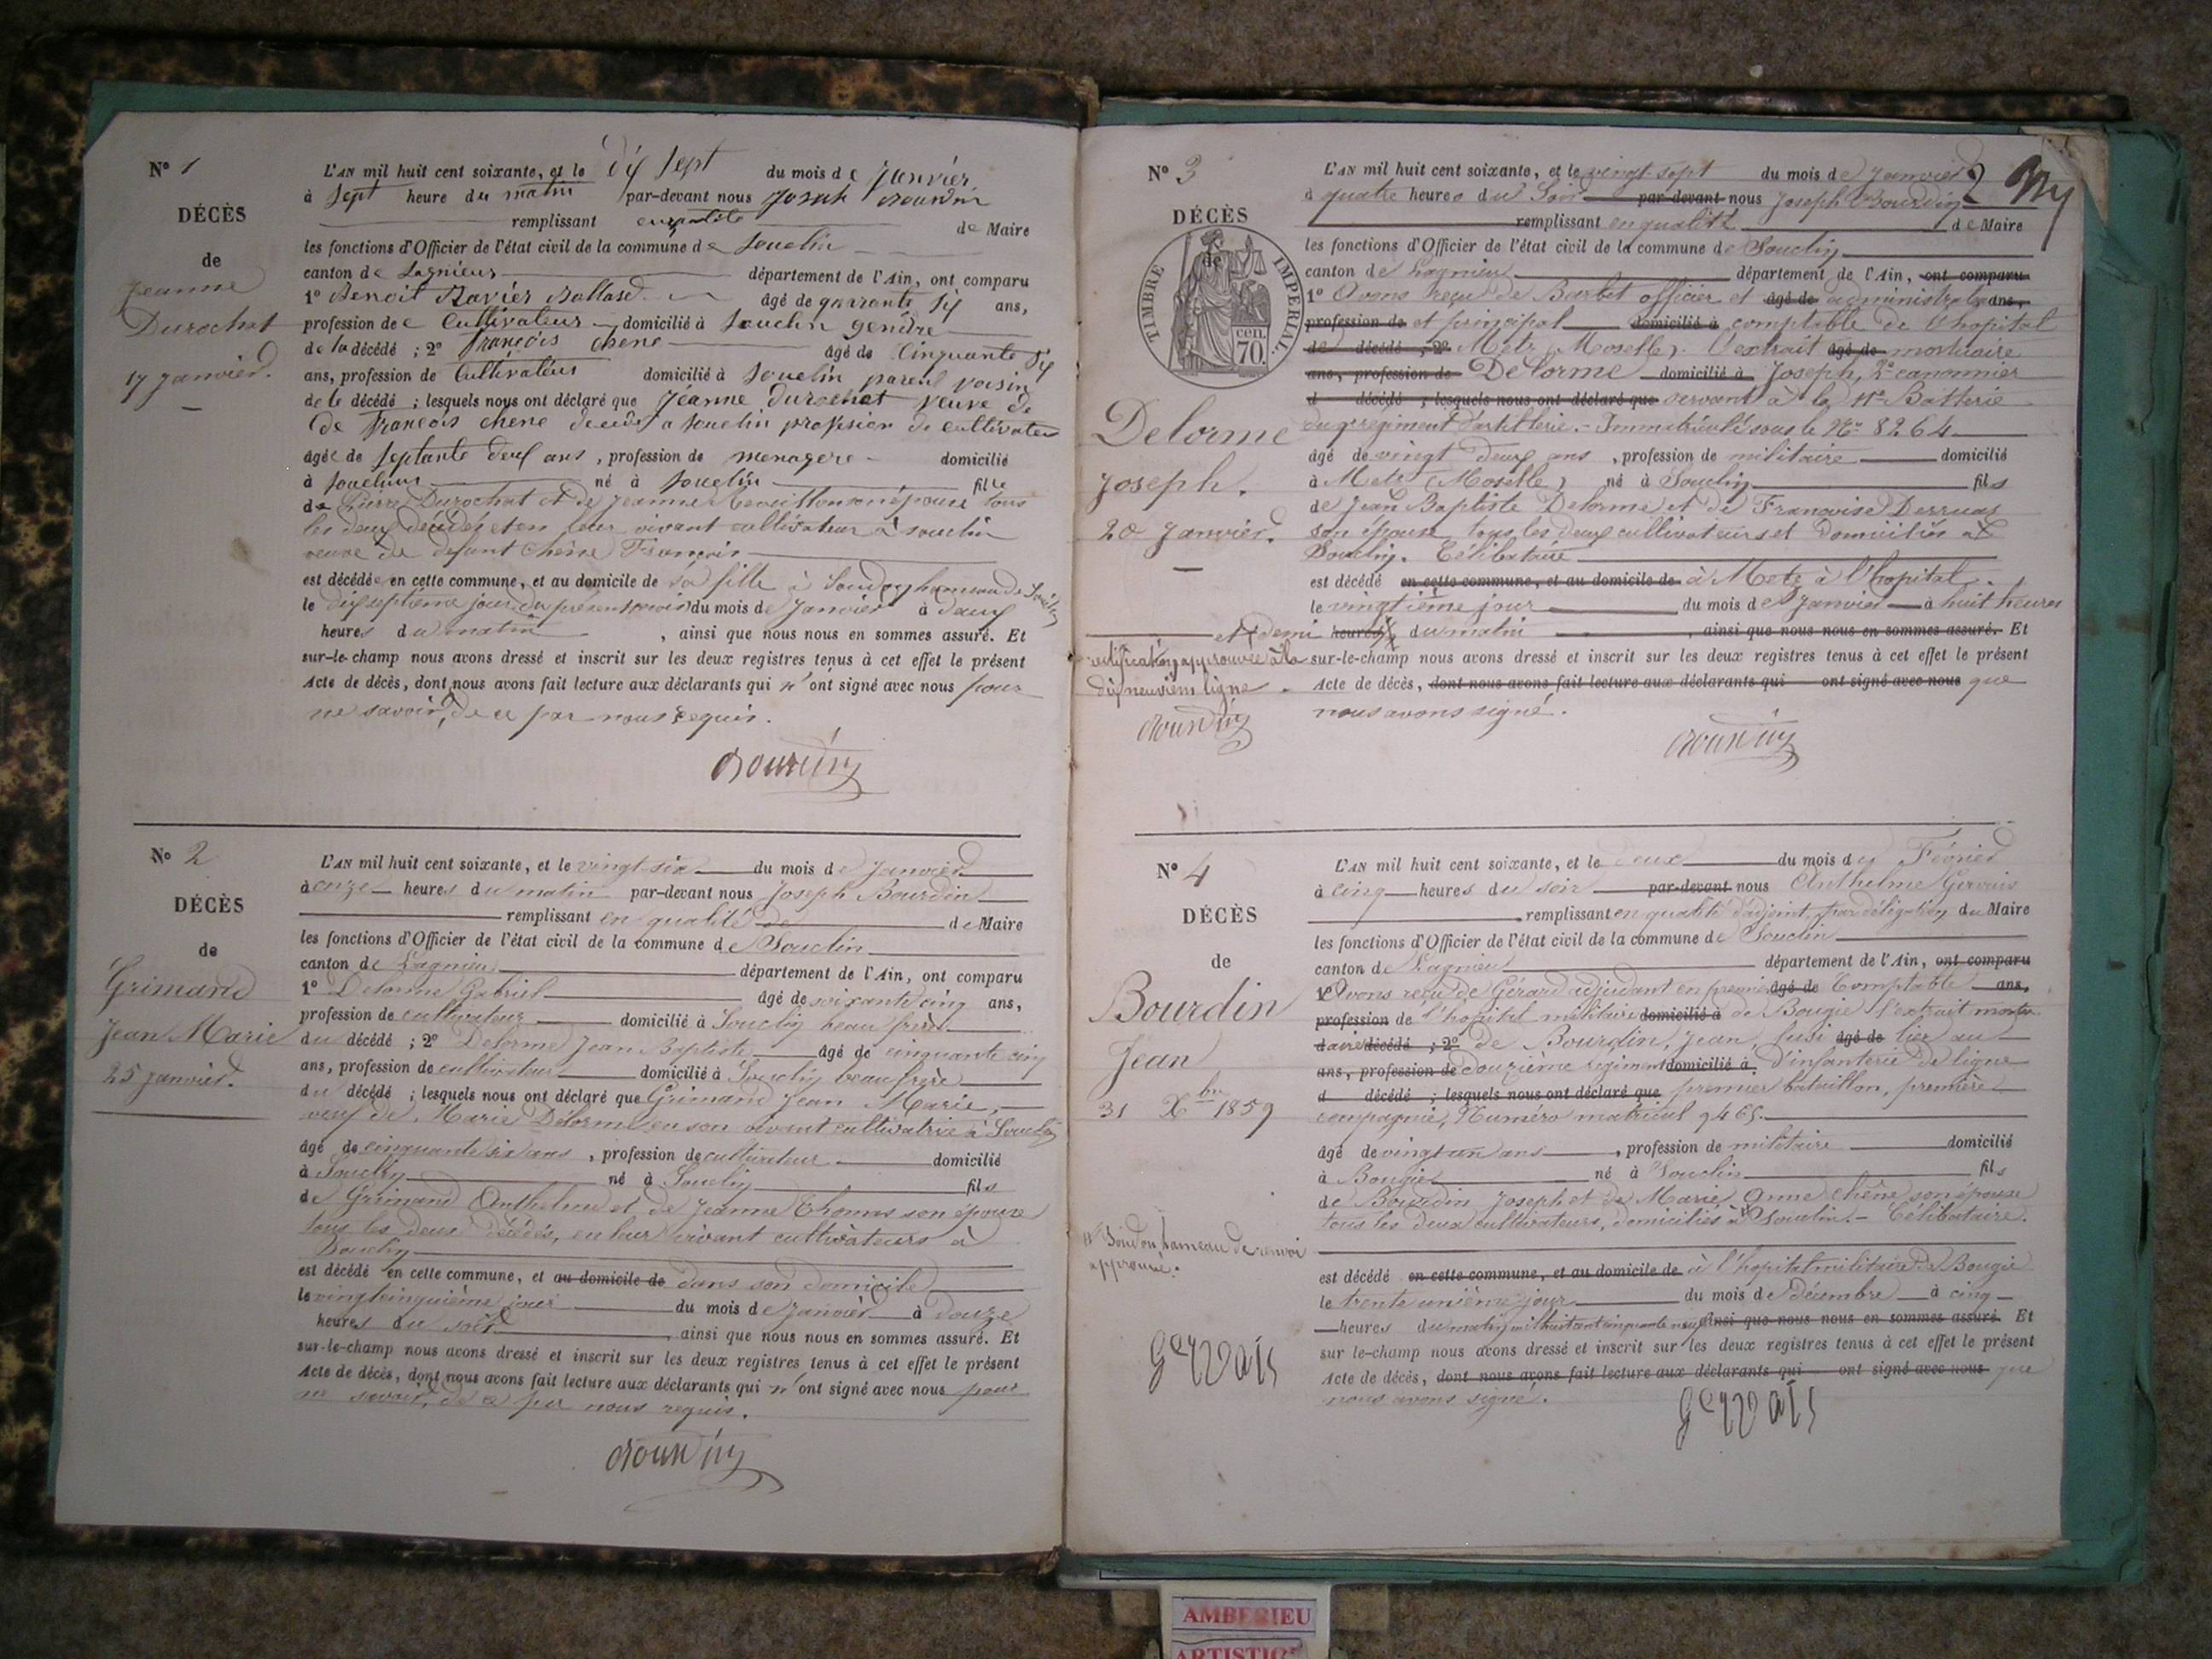 N° 1
DÉCÈS
de
Jeanne
Durochat
17 Janvier.
L'AN mil huit cent soixante, et le dix sept du mois de Janvier
à sept heure du matin par-devant nous Joseph Bourdin
remplissant en qualité de Maire
les fonctions d'Officier de l'état civil de la commune de Souclin
canton de Lagnieux département de l'Ain, ont comparu
1° Benoit Xavier âgé de quarante six ans,
profession de Cultivateur domicilié à Souclin gendre
de la décédé ; 2° François Chene âgé de Cinquante six
ans, profession de Cultivateur domicilié à Souclin parent voisin
de le décédé ; lesquels nous ont déclaré que Jeanne Durochat veuve de
de François Chene décédé a Souclin profision de cultivateur
âgée de septante deux ans, profession de menagere domicilié
à Souclin né à Souclin fille
de Pierre Durochat et de Jeanne son épouse tous
les deux décédés et en leur vivant cultivateur à Souclin
veuve de defunt Chêne François
est décédée en cette commune, et au domicile de sa fille à Soudon hameau de Souclin
le dix septième jour du présent mois du mois de Janvier à deux
heures du matin, ainsi que nous nous en sommes assuré. Et
sur-le-champ nous avons dressé et inscrit sur les deux registres tenus à cet effet le présent
Acte de décès, dont nous avons fait lecture aux déclarants qui n'ont signé avec nous pour
ne savoir, de ce par nous requis.
Bourdin
N° 2
DÉCÈS
de
Grimand
Jean Marie
25 Janvier.
L'AN mil huit cent soixante, et le vingt-six du mois de Janvier
à onze heures du matin par-devant nous Joseph Bourdin
remplissant en qualité de de Maire
les fonctions d'Officier de l'état civil de la commune de Souclin
canton de Lagnieu département de l'Ain, ont comparu
1° Delorme Gabriel âgé de soixante cinq ans,
profession de cultivateur domicilié à Souclin beau frère
du décédé ; 2° Delorme Jean Baptiste âgé de cinquante cinq
ans, profession de cultivateur domicilié à Souclin beau frère
du décédé ; lesquels nous ont déclaré que Grimand Jean Marie,
veuf de Marie Delorme en son vivant cultivatrice à Souclin
âgé de cinquante six ans, profession de cultivateur domicilié
à Souclin né à Souclin fils
de Grimand Anthelme et de Jeanne Thomas son épouse
tous les deux décédés, en leur vivant cultivateurs à
Souclin
est décédé en cette commune, et au domicile de dans son domicile
le vingt cinquième jour du mois de Janvier à douze
heures du soir, ainsi que nous nous en sommes assuré. Et
sur-le-champ nous avons dressé et inscrit sur les deux registres tenus à cet effet le présent
Acte de décès, dont nous avons fait lecture aux déclarants qui n'ont signé avec nous pour
ne savoir, de ce par nous requis.
Bourdin
2
N° 3
DÉCÈS
de
TIMBRE IMPERIAL.
cen. 70.
Delorme
Joseph.
20 Janvier.
rectification approuvée à la
dix neuvième ligne
Bourdin
L'AN mil huit cent soixante, et le vingt-sept du mois de Janvier
à quatre heures du Soir par-devant nous Joseph Bourdin
remplissant en qualité de Maire
les fonctions d'Officier de l'état civil de la commune de Souclin
canton de Lagnieu département de l'Ain, ont comparu
1° Avons reçu de Barbet officier et âgé de administrateur ans,
profession de et principal domicilié à comptable de l'hopital
de décédé ; 2° Metz (Moselle). l'extrait âgé de mortuaire
ans, profession de Delorme domicilié à Joseph, 2e canonnier
d décédé ; lesquels nous ont déclaré que servant à la 11e Batterie
du 9e regiment d'artillerie. - Immatriculé sous le N° 8264
âgé de vingt deux ans, profession de militaire domicilié
à Metz (Moselle) né à Souclin fils
de Jean Baptiste Delorme et de Françoise Derruaz
son épouse tous les deux cultivateurs et domiciliés à
Souclin. Célibataire
est décédé en cette commune, et au domicile de à Metz à l'hopital.
le vingtième jour du mois de Janvier à huit heures
et demi heures du matin, ainsi que nous nous en sommes assuré. Et
sur-le-champ nous avons dressé et inscrit sur les deux registres tenus à cet effet le présent
Acte de décès, dont nous avons fait lecture aux déclarants qui ont signé avec nous que
nous avons signé.
Bourdin
N° 4
DÉCÈS
de
Bourdin
Jean
31 Xbre 1859
Soudon, hameau de renvoi
approuvé.
Gervais
L'AN mil huit cent soixante, et le deux du mois du Février
à cinq heures du soir par-devant nous Anthelme Gervais
remplissant en qualité d'adjoint, par délégation du Maire
les fonctions d'Officier de l'état civil de la commune de Souclin
canton de Lagnieu département de l'Ain, ont comparu
1° Avons reçu de Gérard adjudant en premier âgé de Comptable ans,
profession de l'hopital militaire domicilié à de Bougie l'extrait mortu-
aire décédé ; 2° de Bourdin, Jean, fusi âgé de lier au
ans, profession de douzième regiment domicilié à d'infanterie de ligne
d décédé ; lesquels nous ont déclaré que premier bataillon, première
compagnie, Numéro matricul 9465.
âgé de vingt un ans, profession de militaire domicilié
à Bougie né à Souclin fils
de Bourdin Joseph et de Marie Anne Chêne son épouse
tous les deux cultivateurs, domiciliés à Souclin. - Célibataire.
est décédé en cette commune, et au domicile de à l'hopital militaire de Bougie
le trente unième jour du mois de Décembre à cinq
heures du matin mil huit cent cinquante neuf ainsi que nous nous en sommes assuré. Et
sur le-champ nous avons dressé et inscrit sur les deux registres tenus à cet effet le présent
Acte de décès, dont nous avons fait lecture aux déclarants qui ont signé avec nous que
nous avons signé.
Gervais
AMBERIEU
ARTISTIQ